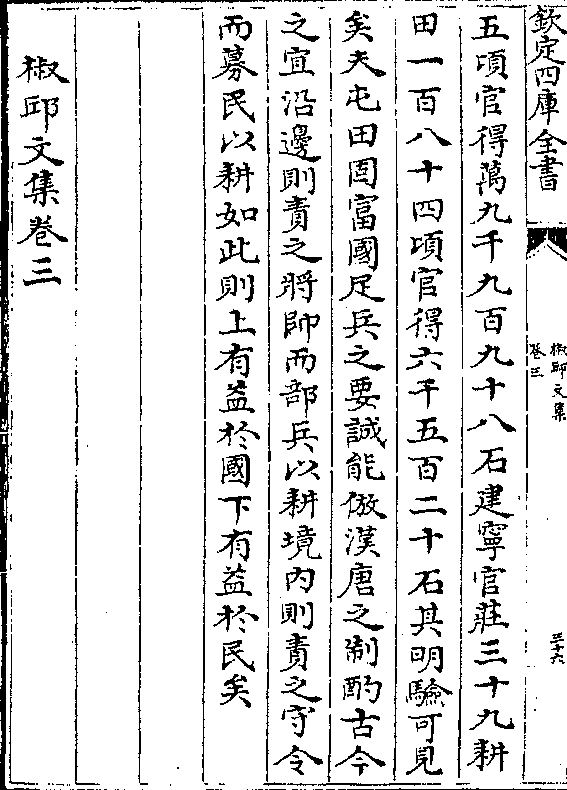 欽定四庫全書
椒邱文集
卷三
三十六
五頃官得萬九千九百九十八石建寧官莊三十九耕
田一百八十四頃官得六千五百二十石其明驗可見
矣夫屯田固富國足兵之要誠能倣漢唐之制酌古今
之宜沿邊則責之將帥而部兵以耕境内則責之守令
而募民以耕如此則上有益於國下有益於民矣
椒邱文集卷三